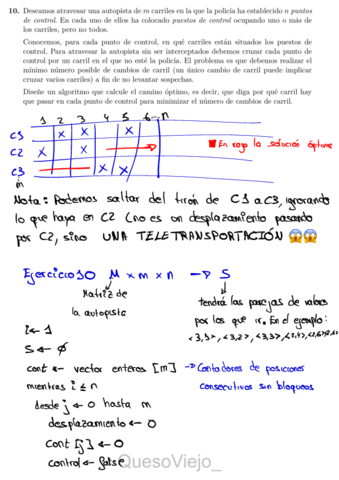 10. Deseamos atravesar una autopista de m carriles en la que la policía ha establecido n puntos
de control. En cada uno de ellos ha colocado puestos de control ocupando uno o más de
los carriles, pero no todos.
Conocemos, para cada punto de control, en qué carriles están situados los puestos de
control. Para atravesar la autopista sin ser interceptados debemos cruzar cada punto de
control por un carril en el que no esté la policía. El problema es que debemos realizar el
mínimo número posible de cambios de carril (un único cambio de carril puede implicar
cruzar varios carriles) a fin de no levantar sospechas.
Diseñe un algoritmo que calcule el camino óptimo, es decir, que diga por qué carril hay
que pasar en cada punto de control para minimizar el número de cambios de carril.
1 2 3 4 5 6 ... n
C1 X X X
C2 X X
C3 X X
m
En rojo la solución óptima
Nota: Podemos saltar del tirón de C1 a C3, ignorando
lo que haya en C2 (no es un desplazamiento pasando
por C2, sino UNA TELETRANSPORTACIÓN 😱😱
Ejercicio 10 M x m x n → S
Matriz de
la autopista
tendrá las parejas de valores
por los que ir. En el ejemplo:
<3,1>, <3,2>, <3,3>, <2,4>, <2,5>, <2,6>
i ← 1
S ← ∅
cont ← vector enteros [m] → Contadores de posiciones
consecutivas sin bloqueos
mientras i ≤ n
desde j ← 0 hasta m
desplazamiento ← 0
cont [j] ← 0
control ← false
QuesoViejo_